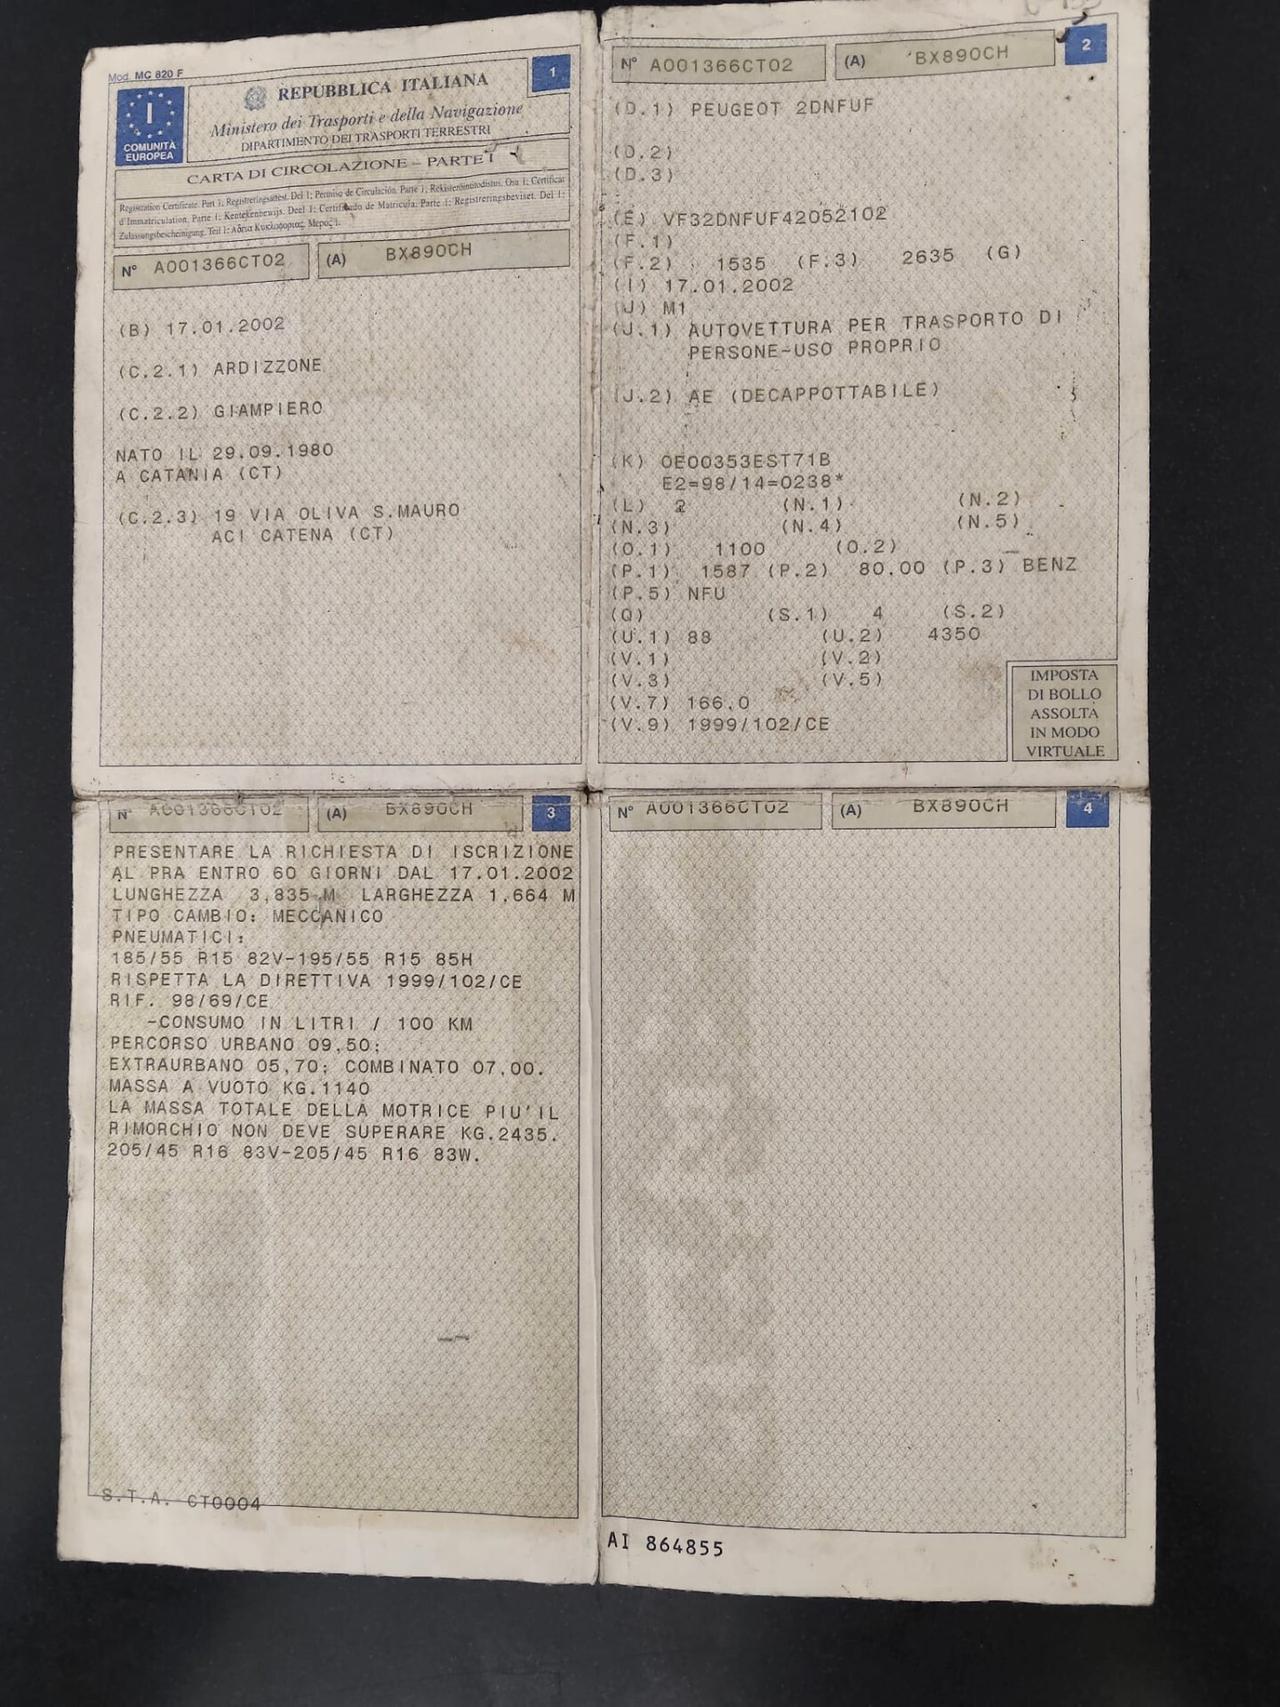 Mod. MC 820 F
1
I
COMUNITÀ
EUROPEA
REPUBBLICA ITALIANA
Ministero dei Trasporti e della Navigazione
DIPARTIMENTO DEI TRASPORTI TERRESTRI
CARTA DI CIRCOLAZIONE – PARTE I
Registration Certificate. Part 1; Registreringsattest. Del 1; Permiso de Circulación. Parte 1; Rekisteröintitodistus. Osa 1; Certificat
d'Immatriculation. Parte 1; Kentekenbewijs. Deel 1; Certificado de Matrícula. Parte 1; Registreringsbeviset. Del 1;
Zulassungsbescheinigung. Teil 1; Άδεια Κυκλοφορίας. Μέρος 1.
N° A001366CT02 (A) BX890CH
(B) 17.01.2002
(C.2.1) ARDIZZONE
(C.2.2) GIAMPIERO
NATO IL 29.09.1980
A CATANIA (CT)
(C.2.3) 19 VIA OLIVA S.MAURO
ACI CATENA (CT)
N° A001366CT02 (A) BX890CH
2
(D.1) PEUGEOT 2DNFUF
(D.2)
(D.3)
(E) VF32DNFUF42052102
(F.1)
(F.2) 1535 (F.3) 2635 (G)
(I) 17.01.2002
(J) M1
(J.1) AUTOVETTURA PER TRASPORTO DI
PERSONE-USO PROPRIO
(J.2) AE (DECAPPOTTABILE)
(K) OE00353EST71B
E2=98/14=0238*
(L) 2 (N.1) (N.2)
(N.3) (N.4) (N.5)
(O.1) 1100 (O.2)
(P.1) 1587 (P.2) 80,00 (P.3) BENZ
(P.5) NFU
(Q) (S.1) 4 (S.2)
(U.1) 88 (U.2) 4350
(V.1) (V.2)
(V.3) (V.5)
(V.7) 166,0
(V.9) 1999/102/CE
IMPOSTA
DI BOLLO
ASSOLTA
IN MODO
VIRTUALE
N° A001366CT02 (A) BX890CH
3
PRESENTARE LA RICHIESTA DI ISCRIZIONE
AL PRA ENTRO 60 GIORNI DAL 17.01.2002
LUNGHEZZA 3,835 M LARGHEZZA 1,664 M
TIPO CAMBIO: MECCANICO
PNEUMATICI:
185/55 R15 82V-195/55 R15 85H
RISPETTA LA DIRETTIVA 1999/102/CE
RIF. 98/69/CE
-CONSUMO IN LITRI / 100 KM
PERCORSO URBANO 09,50;
EXTRAURBANO 05,70; COMBINATO 07,00.
MASSA A VUOTO KG.1140
LA MASSA TOTALE DELLA MOTRICE PIU'IL
RIMORCHIO NON DEVE SUPERARE KG.2435.
205/45 R16 83V-205/45 R16 83W.
S.T.A. CT0004
N° A001366CT02 (A) BX890CH
4
AI 864855